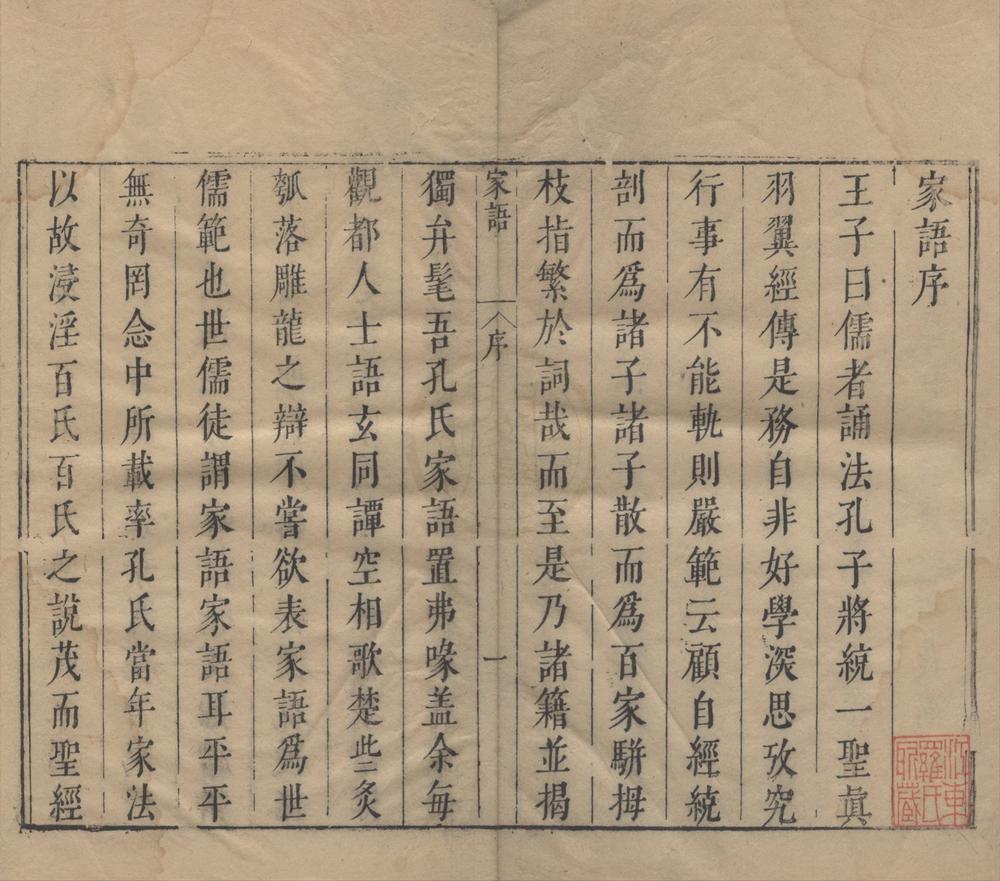 家語序
王子曰儒者誦法孔子將統一聖眞
羽翼經傳是務自非好學深思攷究
行事有不能軌則嚴範云顧自經統
剖而爲諸子諸子散而爲百家駢拇
枝指繁於詞哉而至是乃諸籍並揭
家語 序 一
獨弁髦吾孔氏家語置弗喙盖余每
觀都人士語玄同譚空相歌楚些炙
瓠落雕龍之辯不嘗欲表家語爲世
儒範也世儒徒謂家語家語耳平平
無奇罔念中所載率孔氏當年家法
以故浸淫百氏百氏之說茂而聖經
江東羅氏所藏